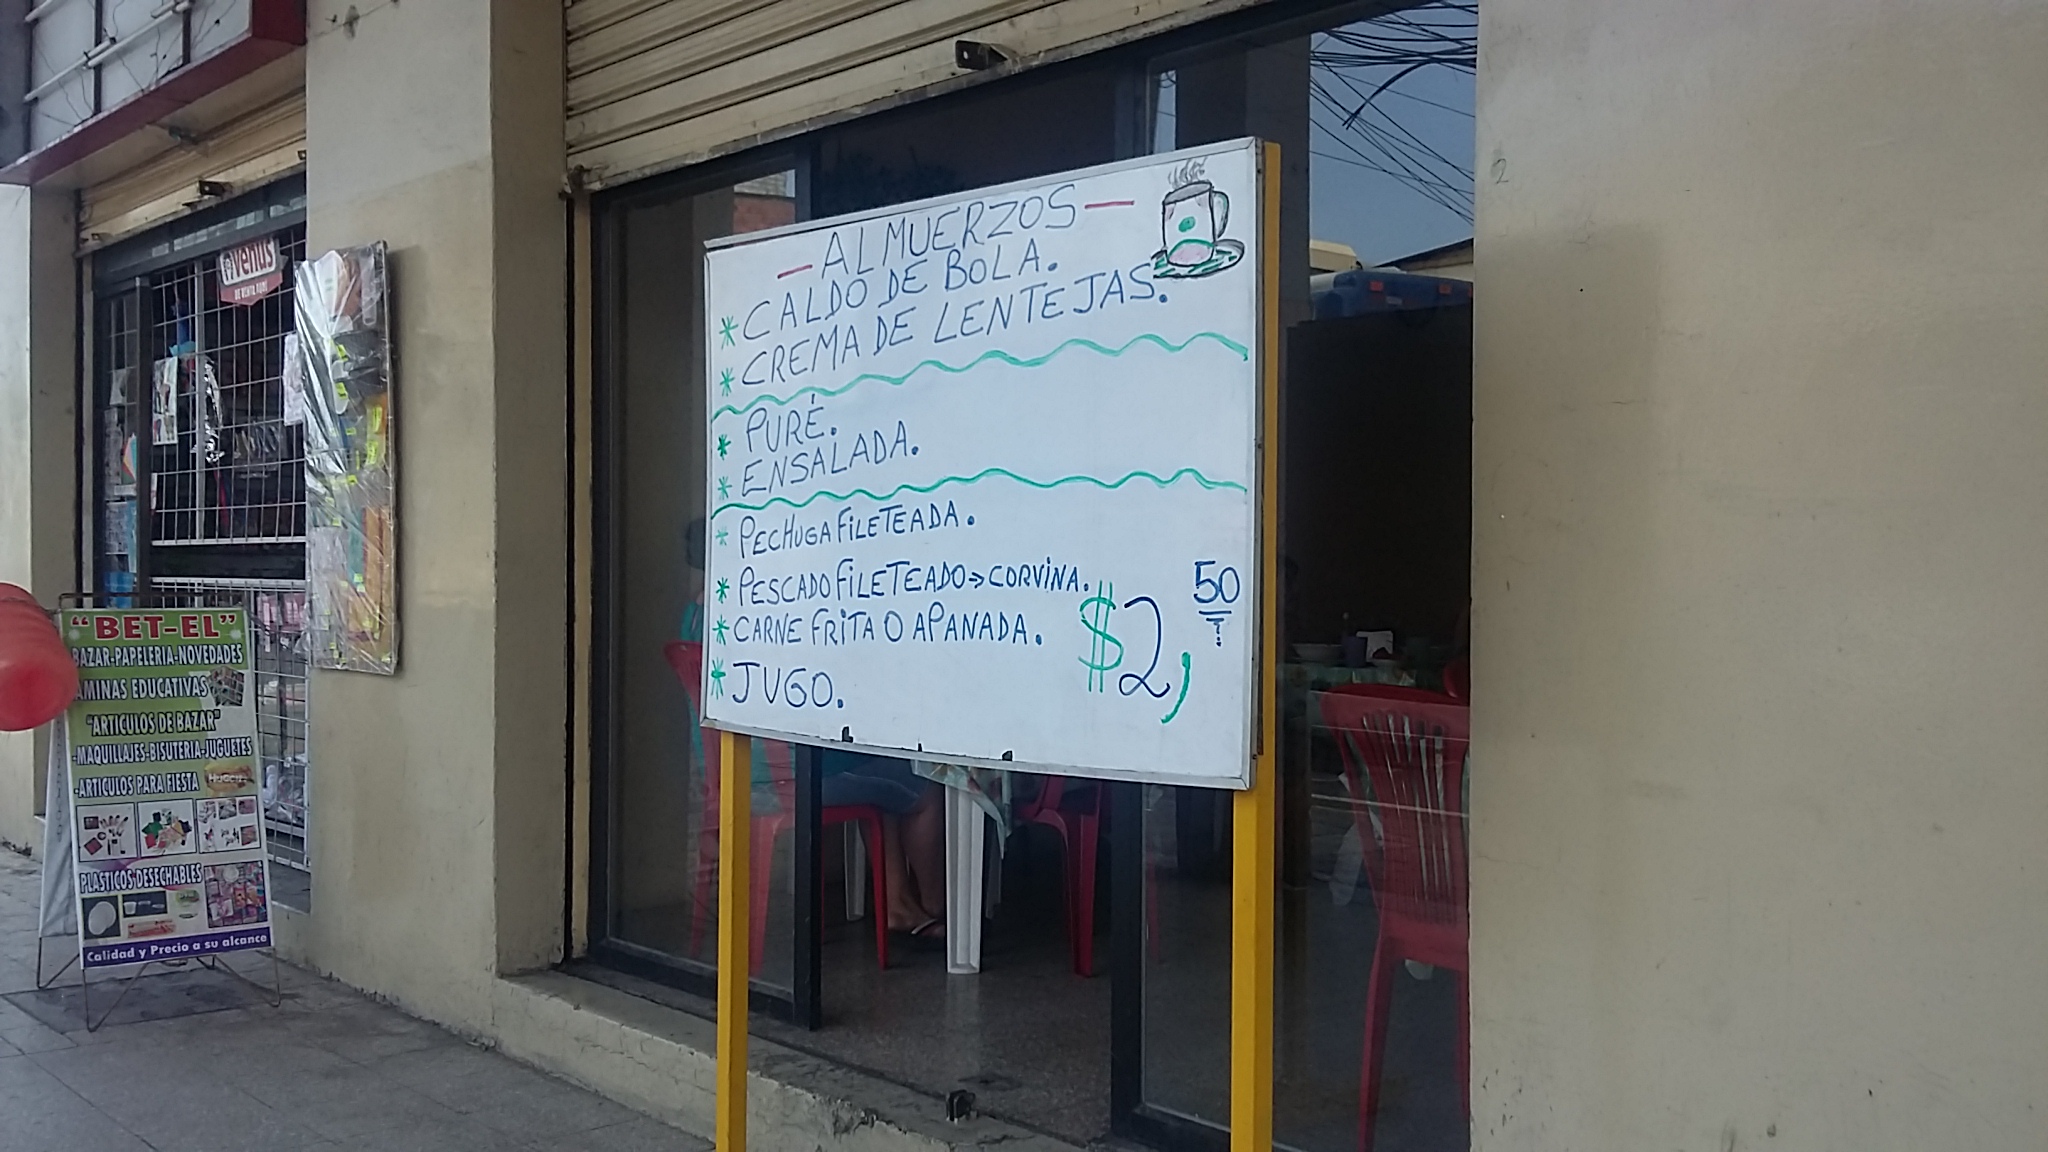 — ALMUERZOS —
* CALDO DE BOLA.
* CREMA DE LENTEJAS.
* PURÉ.
* ENSALADA.
* PECHUGA FILETEADA.
* PESCADO FILETEADO → CORVINA.
* CARNE FRITA O APANADA.
* JUGO.
$2,50
Venus
"BET-EL"
BAZAR-PAPELERIA-NOVEDADES
AMINAS EDUCATIVAS
"ARTICULOS DE BAZAR"
-MAQUILLAJES-BISUTERIA-JUGUETES
-ARTICULOS PARA FIESTA
PLASTICOS DESECHABLES
Calidad y Precio a su alcance